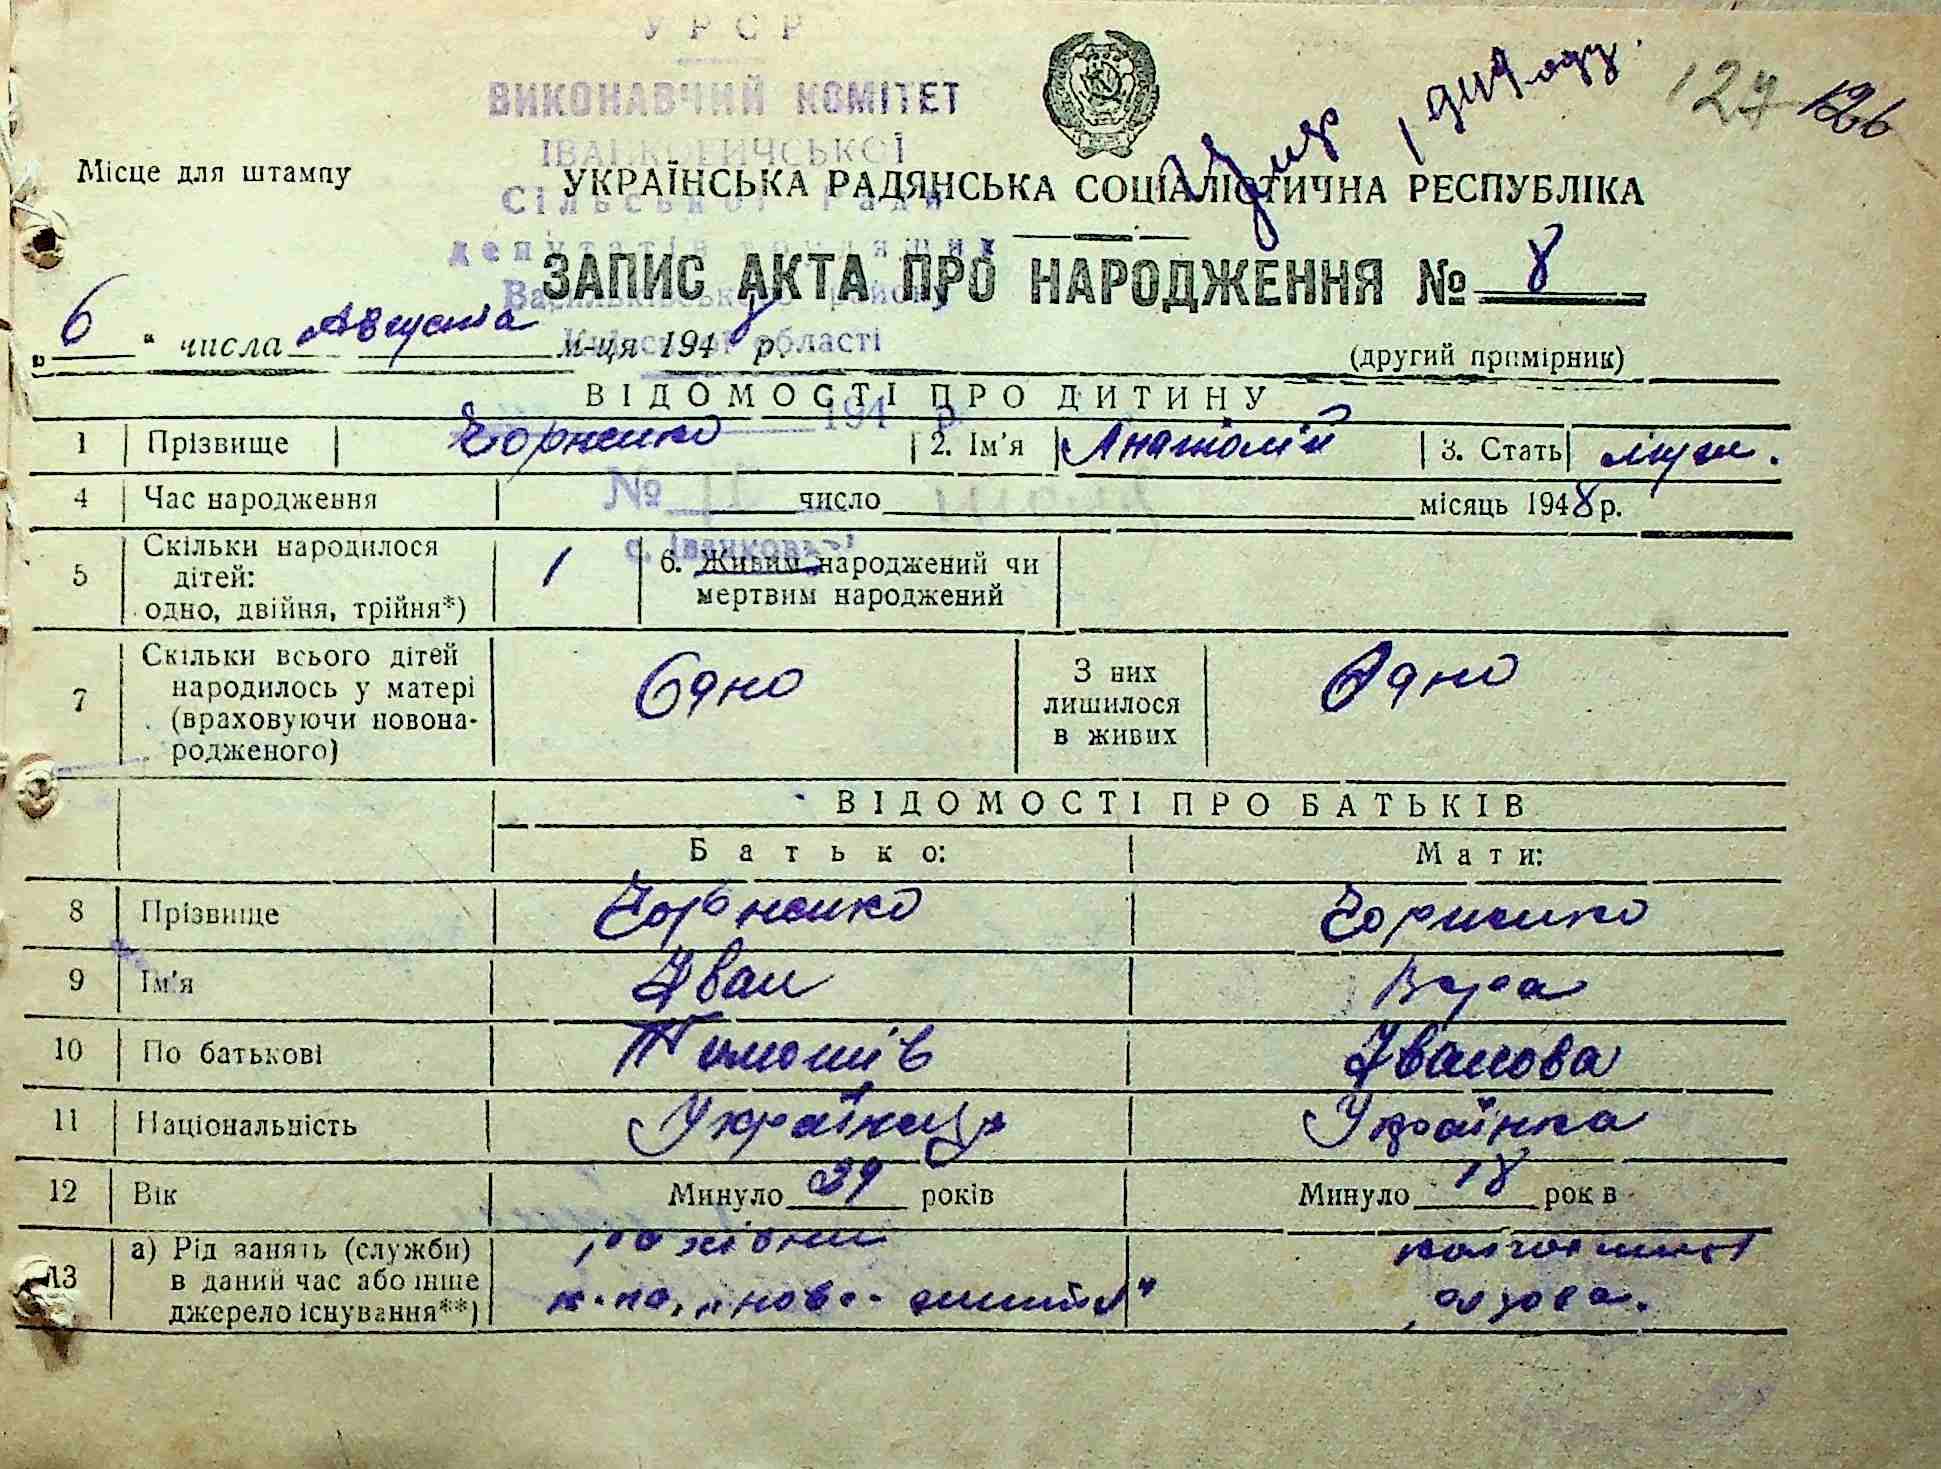 УРСР
ВИКОНАВЧИЙ КОМІТЕТ
ІВАНКОВИЧСЬКОЇ
Сільської Ради
депутатів трудящих
Васильківського району
Київської області
194 р.
№
с. Іванкови
127 126
Місце для штампу
УКРАЇНСЬКА РАДЯНСЬКА СОЦІАЛІСТИЧНА РЕСПУБЛІКА
ЗАПИС АКТА ПРО НАРОДЖЕННЯ № 8
„6“ числа Августа м-ця 1948 р.
(другий примірник)
ВІДОМОСТІ ПРО ДИТИНУ
1 Прізвище Чорненко 2. Ім'я Анатолій 3. Стать муж.
4 Час народження число місяць 1948 р.
5 Скільки народилося дітей: одно, двійня, трійня*) 1 6. Живим народжений чи мертвим народжений
7 Скільки всього дітей народилось у матері (враховуючи новонародженого) Одно З них лишилося в живих Одно
ВІДОМОСТІ ПРО БАТЬКІВ
Батько: Мати:
8 Прізвище Чорненко Чорненко
9 Ім'я Іван Вера
10 По батькові Тимошів Іванова
11 Національність Українец Українка
12 Вік Минуло 29 років Минуло 18 років
13 а) Рід занять (служби) в даний час або інше джерело існування**)